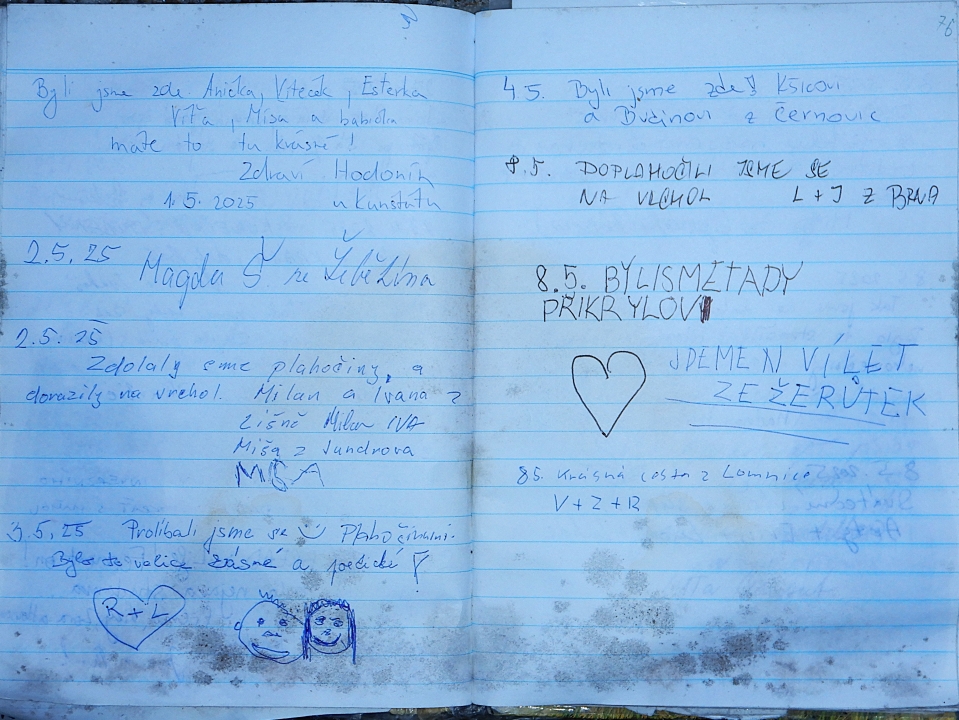 Byli jsme zde Anička, Víteček, Esterka
Víťa, Míša a babička
máte to tu krásné!
Zdraví Hodonín
1.5.2025 u Kunštátu
2.5.25 Magda Š. ze
2.5.25
Zdolaly sme plahočiny, a
dorazily na vrchol. Milan a Ivana z
Lišně Milan IVA
Míša z Jundrova
MŠA
3.5.25 Prolíbali jsme se Plahočinami.
Bylo to velice krásné a poetické!
R+L
76
4.5. Byli jsme zde! Kšicovi
a Bučinovi z Černovic
8.5. DOPLAHOČILI JSME SE
NA VRCHOL L+J Z BRNA
8.5. BYLISMETADY
PŘIKRYLOVI
JDEME N VÍLET
ZE ŽERŮTEK
8.5. Krásná cesta z Lomnice
V+Z+R